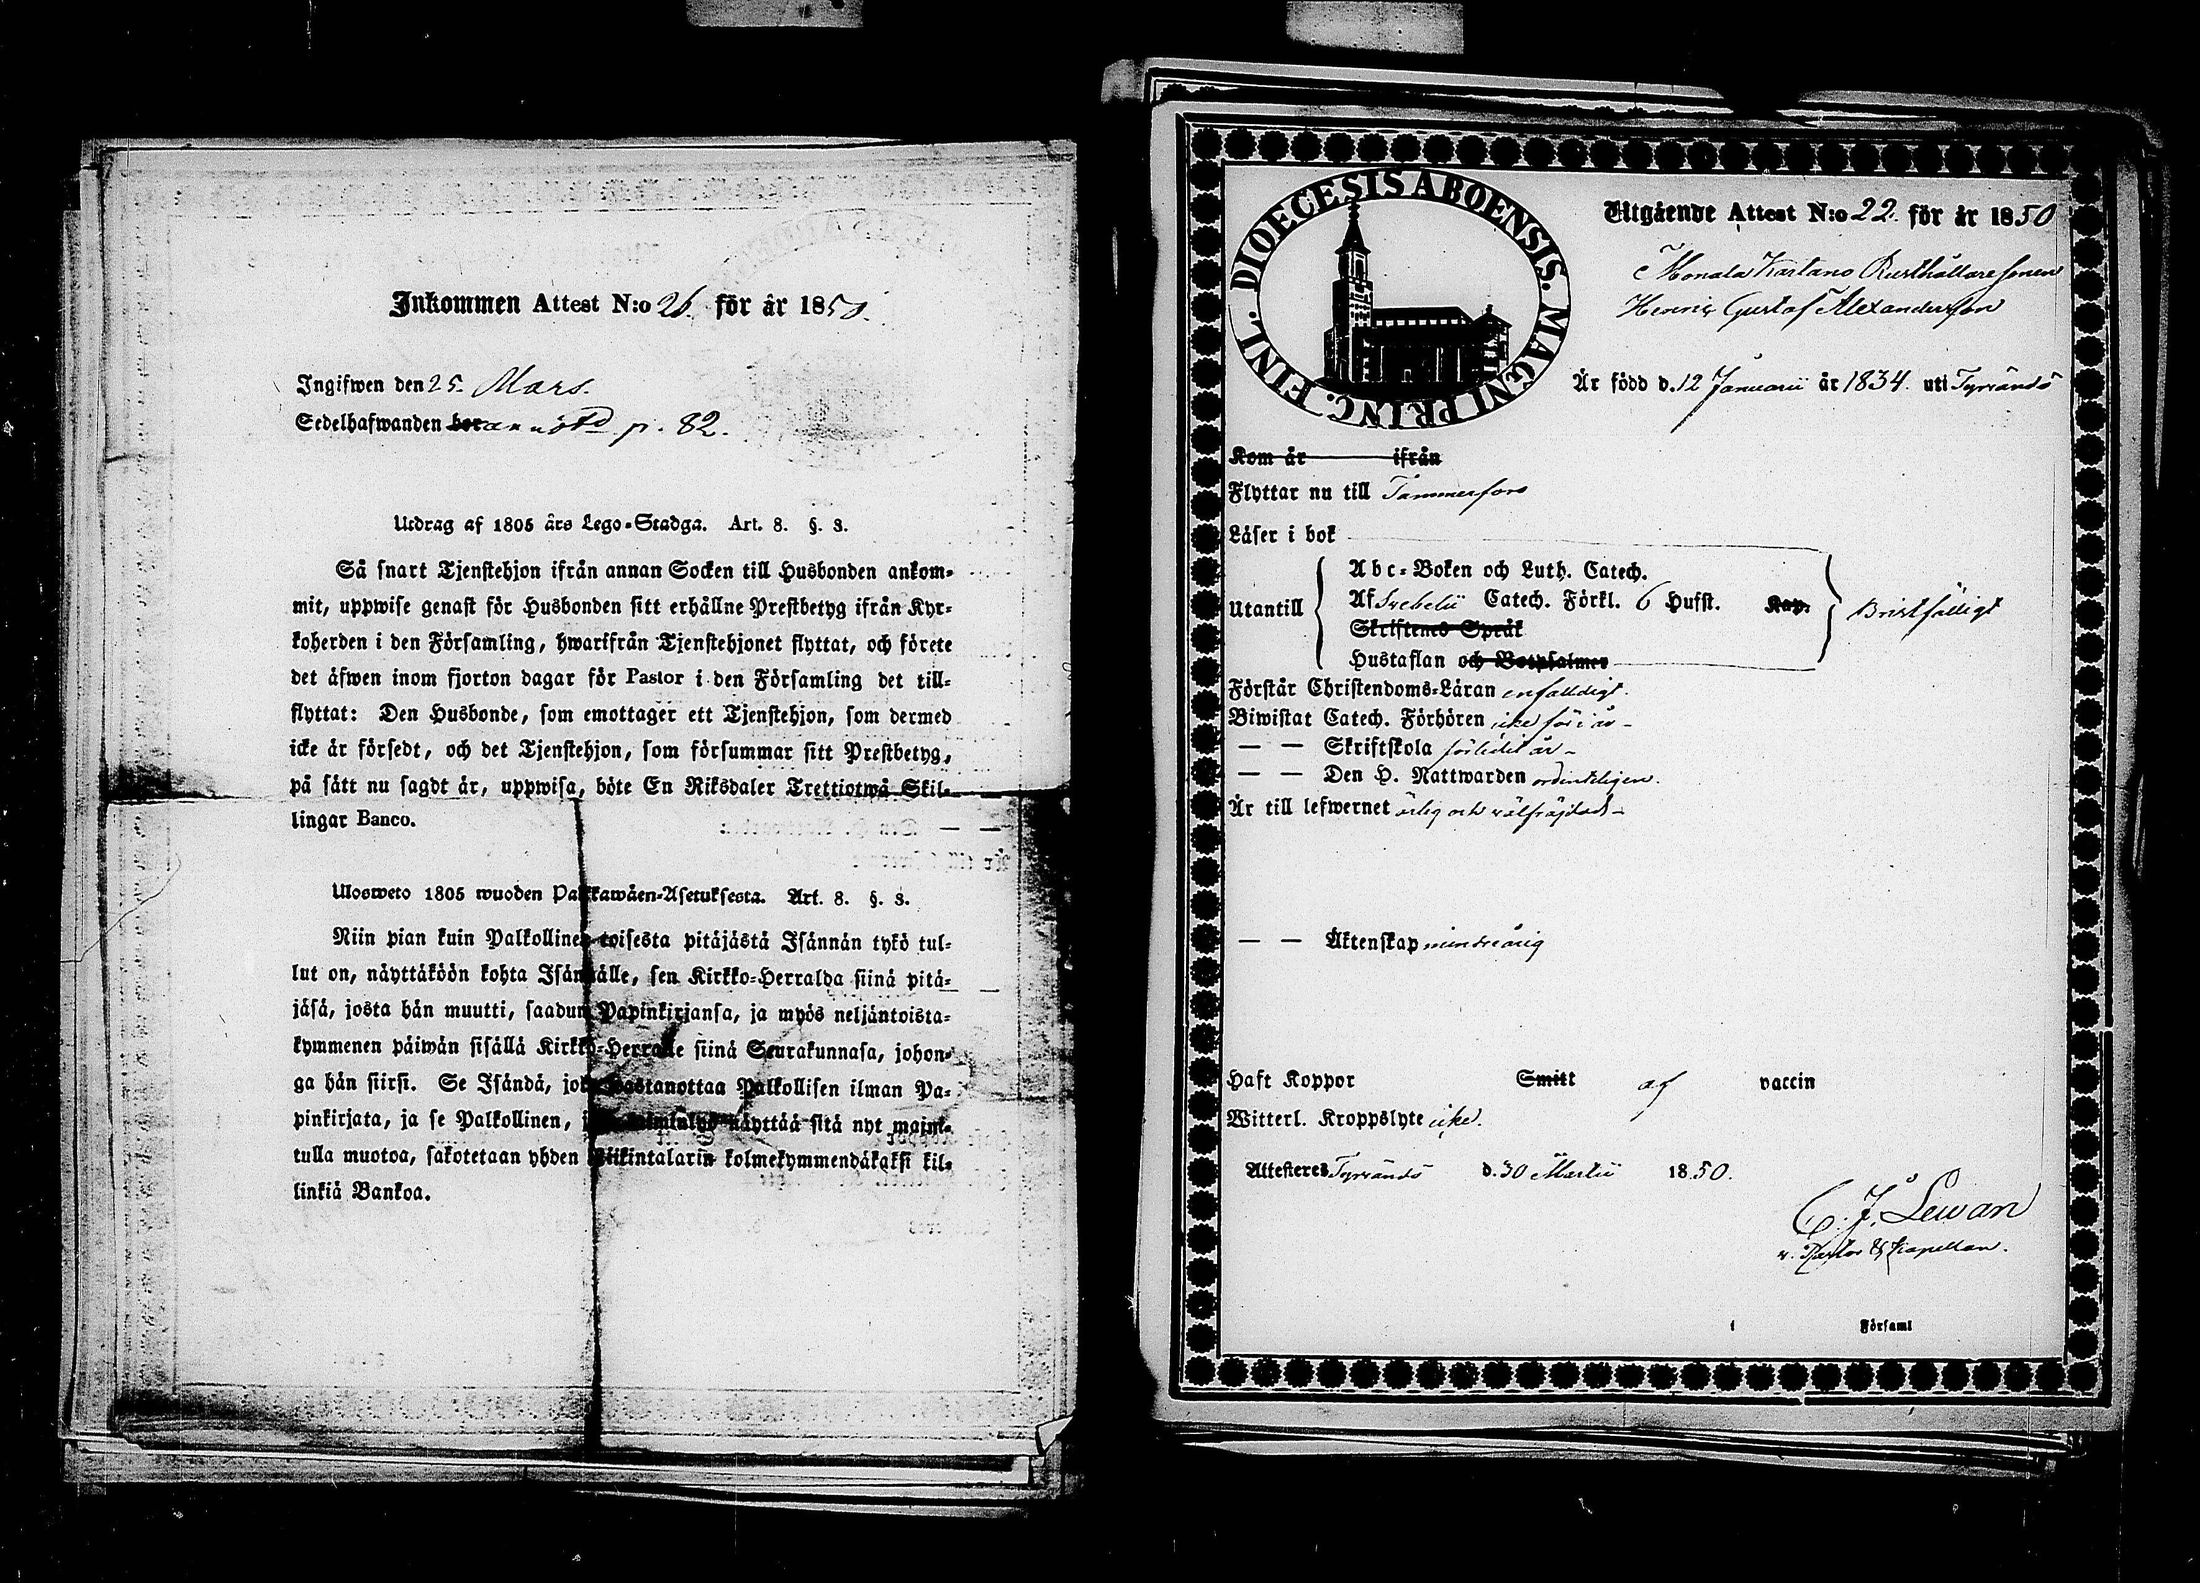 Inkommen Attest N:o 26. för år 1850.
Ingifwen den 25. Mars.
Sedelhafwanden bor annotd p. 82.
Utdrag af 1805 års Lego-Stadga. Art. 8. §. 3.
Så snart Tjenstehjon ifrån annan Socken till Husbonden ankom-
mit, uppwise genast för Husbonden sitt erhållne Prestbetyg ifrån Kyr-
koherden i den Församling, hwarifrån Tjenstehjonet flyttat, och förete
det äfwen inom fjorton dagar för Pastor i den Församling det till-
flyttat: Den Husbonde, som emottager ett Tjenstehjon, som dermed
icke är försedt, och det Tjenstehjon, som försummar sitt Prestbetyg,
på sätt nu sagdt är, uppwisa, böte En Riksdaler Trettiotwå Skil-
lingar Banco.
Ulosweto 1805 wuoden Palkkawäen-Asetuksesta. Art. 8. §. 3.
Niin pian kuin Palkollinen toisesta pitäjästä Isännän tykö tul-
lut on, näyttäköön kohta Isännälle, sen Kirkko-Herralda siinä pitä-
jäsä, josta hän muutti, saadun Papinkirjansa, ja myös neljäntoista-
kymmenen päiwän sisällä Kirkko-Herralle siinä Seurakunnasa, johon-
ga hän siirsi. Se Isändä, joka wastanottaa Palkollisen ilman Pa-
pinkirjata, ja se Palkollinen, näyttää sitä nyt mainit-
tulla muotoa, sakotetaan yhden Riikintalarin kolmekymmendäkaksi kil-
linkiä Bankoa.
DIOECESIS ABOENSIS. MAGNI PRINC. FINL.
Utgående Attest N:o 22. för år 1850
Monala Kartano Rusthållaresonen
Henric Gustaf Alexandersson
Är född d. 12 Januarii år 1834. uti Tyrvändö
Kom år ifrån
Flyttar nu till Tammerfors
Läser i bok
Utantill
Abc-Boken och Luth. Catech.
Af Svebelii Catech. Förkl. 6 Hufst. Kap.
Skriftenes Språk
Hustaflan och Botpsalmer
Bristfälligt
Förstår Christendoms-Läran enfaldigt.
Biwistat Catech. Förhören icke för i år –
— — Skriftskola förledit år –
— — Den H. Nattwarden ordentligen.
Är till lefwernet ärlig och välfräjdad –
— — Äktenskap minderårig
Haft Koppor Smitt af vaccin
Witterl. Kroppslyte icke.
Attesteres Tyrvändö d. 30 Martii 1850.
C. J. Lewan
v. Pastor & Kapellan.
i Församl